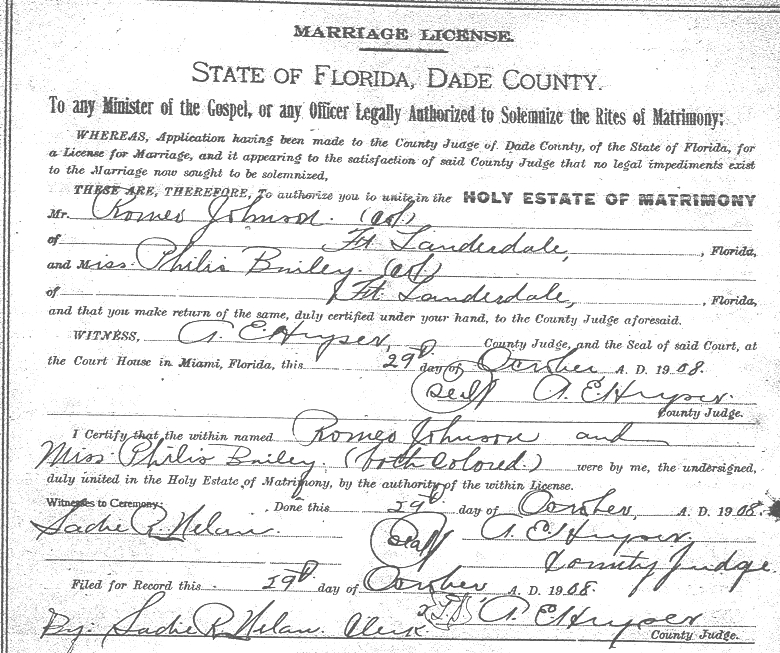 MARRIAGE LICENSE.
STATE OF FLORIDA, DADE COUNTY.
To any Minister of the Gospel, or any Officer Legally Authorized to Solemnize the Rites of Matrimony:
WHEREAS, Application having been made to the County Judge of Dade County, of the State of Florida, for
a License for Marriage, and it appearing to the satisfaction of said County Judge that no legal impediments exist
to the Marriage now sought to be solemnized,
THESE ARE, THEREFORE, To authorize you to unite in the HOLY ESTATE OF MATRIMONY
Mr. Romeo Johnson. (col)
of Ft. Lauderdale, , Florida,
and Miss. Philis Bailey. (col)
of Ft. Lauderdale, , Florida,
and that you make return of the same, duly certified under your hand, to the County Judge aforesaid.
WITNESS, A. E. Heyser, County Judge, and the Seal of said Court, at
the Court House in Miami, Florida, this 29th day of October A. D. 1908.
(Seal) A. E. Heyser
County Judge.
I Certify that the within named Romeo Johnson and
Miss. Philis Bailey. (both Colored.) were by me, the undersigned,
duly united in the Holy Estate of Matrimony, by the authority of the within License.
Witnesses to Ceremony: Done this 29th day of October, A. D. 1908.
Sadie R. Nelan. (Seal) A. E. Heyser
County Judge.
Filed for Record this 29th day of October A. D. 1908.
By: Sadie R. Nelan. Clerk. A. E. Heyser
County Judge.